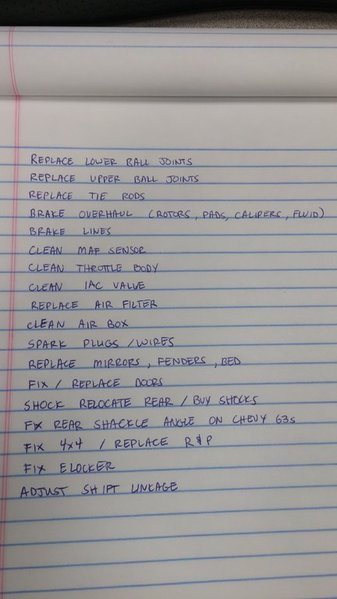 REPLACE LOWER BALL JOINTS
REPLACE UPPER BALL JOINTS
REPLACE TIE RODS
BRAKE OVERHAUL (ROTORS, PADS, CALIPERS, FLUID)
BRAKE LINES
CLEAN MAF SENSOR
CLEAN THROTTLE BODY
CLEAN IAC VALVE
REPLACE AIR FILTER
CLEAN AIR BOX
SPARK PLUGS / WIRES
REPLACE MIRRORS, FENDERS, BED
FIX / REPLACE DOORS
SHOCK RELOCATE REAR / BUY SHOCKS
FIX REAR SHACKLE ANGLE ON CHEVY 63s
FIX 4x4 / REPLACE R&P
FIX ELOCKER
ADJUST SHIFT LINKAGE